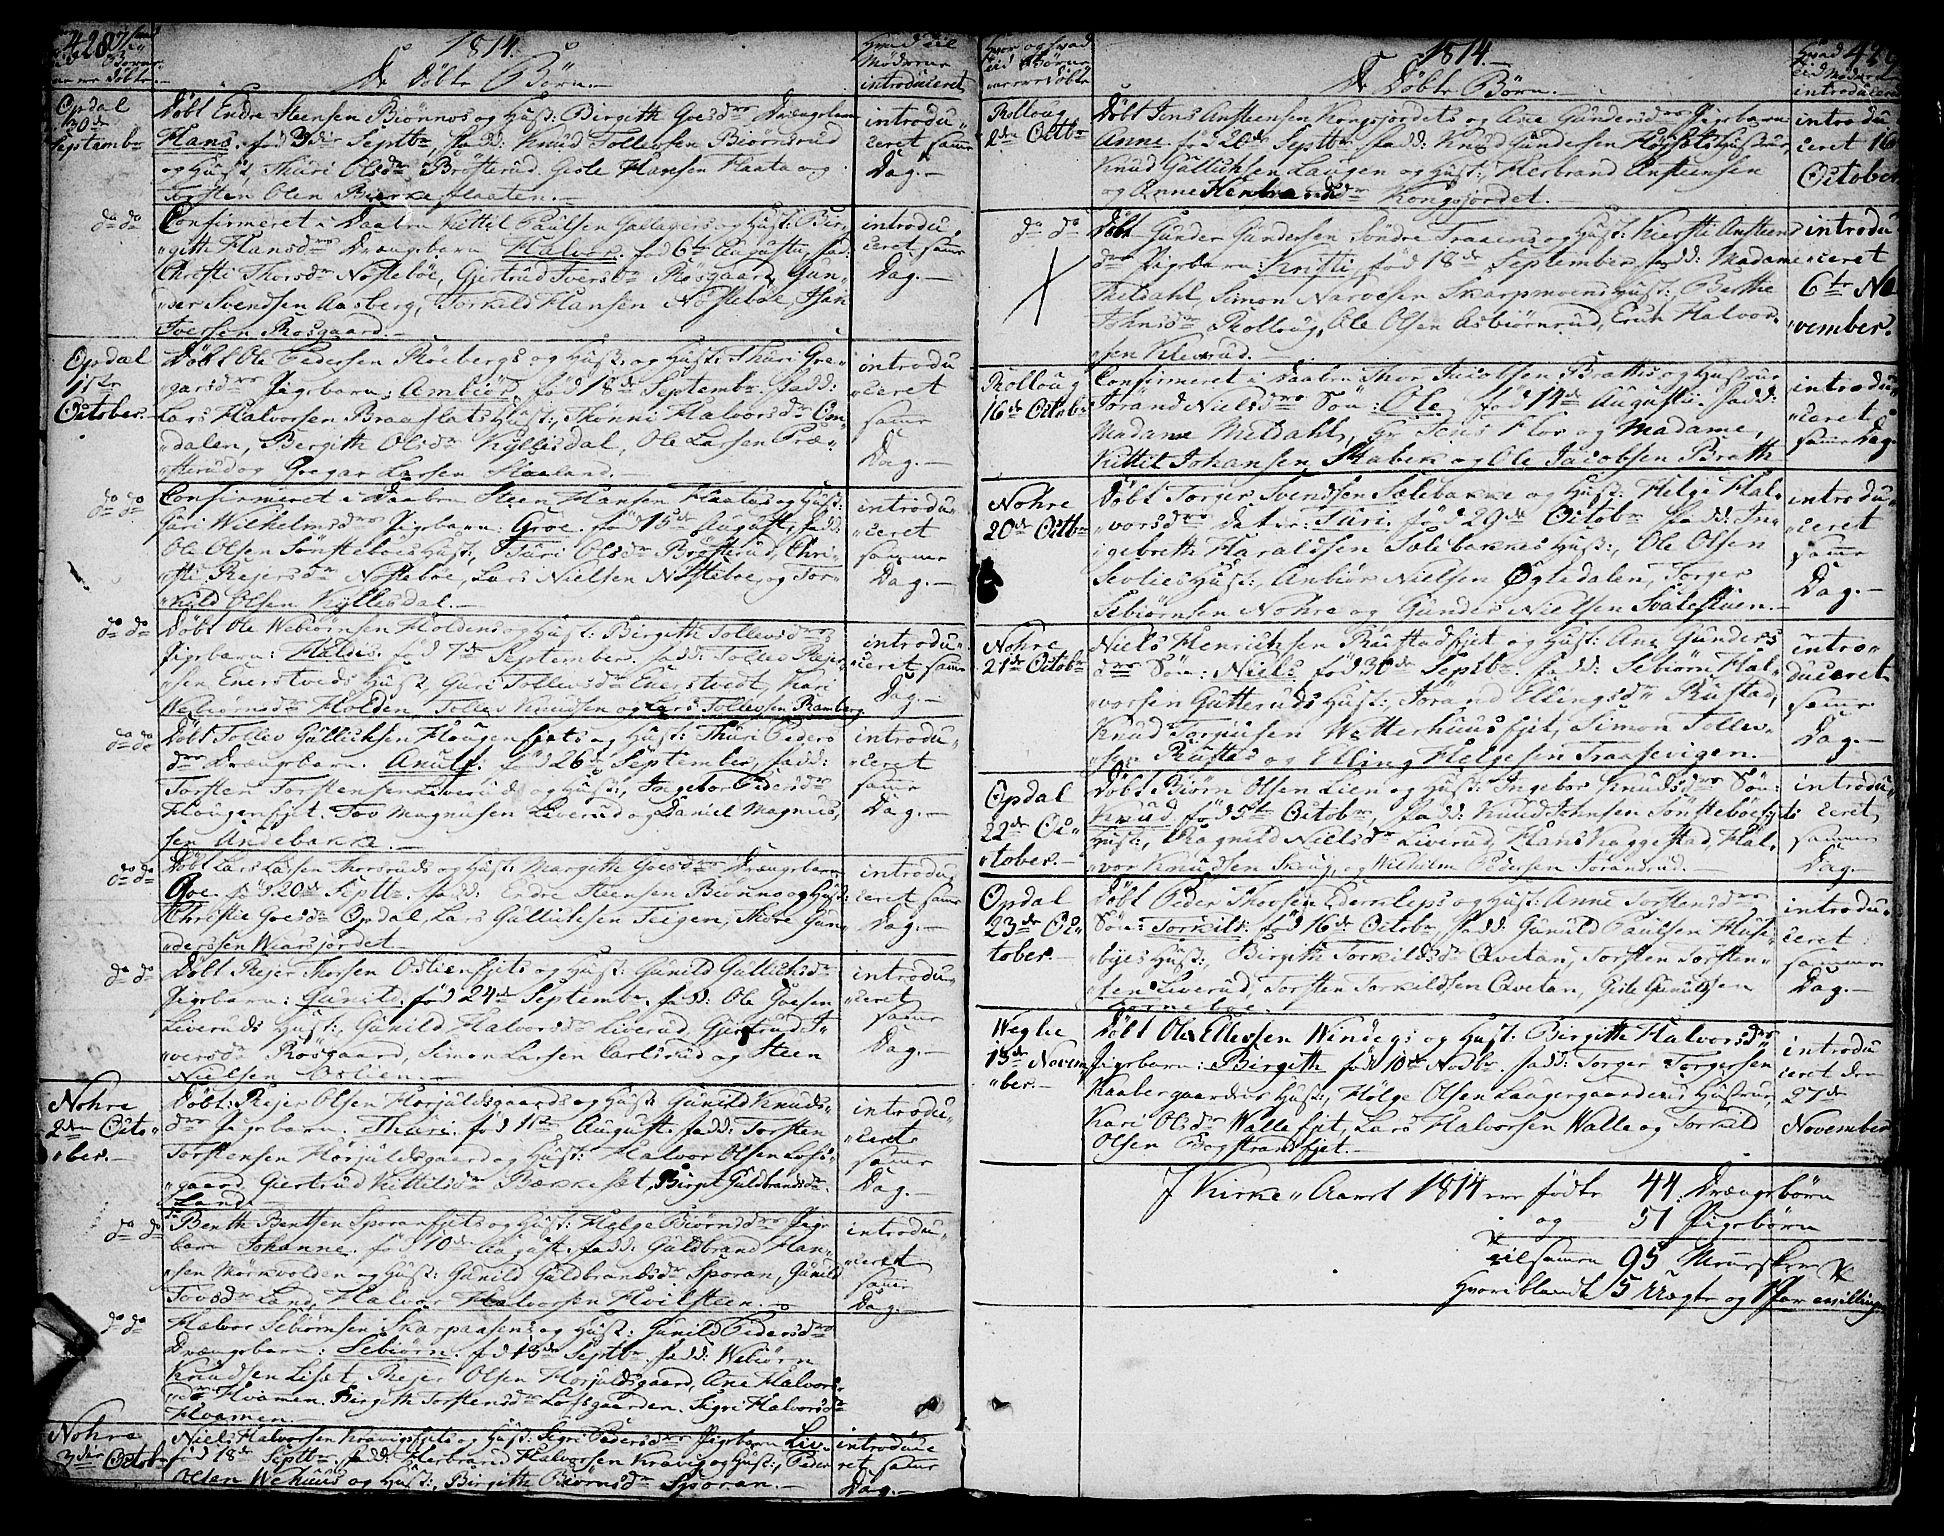 428
1814.
De döbte Börn.
Hvad tid Mödrene introduceret
Opdal 30de Septembr
Döbt Endre Steensen Biönnes og Hust: Birgith Goesdr Drængebarn
Hans. fød 3die Septbr, fadd: Knud Tollevsen Biörnsrud
og Hust, Thuri Olsdr Bröfterud. Gisle Hansen Flaata og
Torsten Olsen Bierkeflaaten.
introduceret samme Dag.
do do
Confirmeret i Daaben Kittil Paulsen Gallagers og Hust: Birgithe Hansdr Drængebarn Halvor. fød 6te Augusti, fad:
Christi Thorsdr Nösteböe, Giertrud Iversdr Rösgaard, Gunder Svendsen Aasberg, Torkild Hansen Nösteböe, Isak
Iversen Rosgaard.
introduceret samme Dag.
Opdal 1ste October.
Döbt Ole Pedersen Röebergs og Hust: Thuri Gregarsdr Pigebarn: Ambiör. fød 18de Septembr. fadd:
Lars Halvorsen Braaflats Hust:, Thonni Halvorsdr Omdalen, Bergith Olsdr Kyllesdal, Ole Larsen Præsterud og Gregar Larsen Haaland.
introduceret samme Dag.
do do
Confirmeret i Daaben Steen Hansen Flaatas og Hust:
Guri Wilhelmsdr Pigebarn: Groe. fød 15de August, fadd:
Ole Olsen Sönsteböes Hust:, Thuri Olsdr Bröfterud, Christi Rejersdr Nösteböe, Lars Nielsen Nösteböe, og Torkild Olsen Kyllesdal.
introduceret samme Dag.
do do
Döbt Ole Webiörnsen Holdens og Hust: Birgith Tollevsdr
Pigebarn: Haldis. fød 7de September. fadd: Tollev Rejersen Enerstveds Hust, Guri Tollevsdr Enerstvedt, Kari
Webiörnsdr Holden, Tollev Knudsen og Lars Tollevsen Ramberg
introduceret samme Dag.
do do
Döbt Tollev Gullichsen Hougenfjets og Hust: Thuri Pedersdr Drængebarn. Anulf. fød 26de September, fadd:
Torsten Torstensen Liverud og Hust:, Ingebor Pedersdr
Hougenfjet. Tov Magnusen Liverud og Daniel Magnussen Andebakke.
introduceret samme Dag.
do do
Döbt Lars Larsen Thorsruds og Hust: Margith Goesdr Drængebarn
Goe. fød 20de Septbr. fadd: Endre Steensen Biönnes og Hust:
Christie Goesdr Opdal, Lars Gullichsen Teigen, Thore Gundersen Wiarsjordet
introduceret samme Dag.
do do
Döbt Rejer Thorsen Oslienfjets og Hust: Gunild Gullichsdr
Pigebarn: Gunild. fød 24de Septembr. fadd: Ole Goesen
Liveruds Hust:, Gunild Halvorsdr Liverud, Giertrud Iversdr Rösgaard, Simon Larsen Carlsrud og Steen
Nielsen Oslien.
introduceret samme Dag.
Nohre 2den October.
Döbt: Rejer Olsen Horjuldsgaards og Hust: Gunild Knudsdr Pigebarn. Thuri. fød 11te August: fadd: Torsten
Torstensen Horjuldsgaard og Hust: Halvor Olsen Lofsgaard Giertrud Kittilsdr Bækkeset, Birgit Guldbrandsdr
Land.
introduceret samme Dag.
do do
Benth Bentsen Sporanfjets og Hust: Helge Biörnsdr Pigebarn Johanne. fød 10de August. fadd: Guldbrand Hansen Mörkvolden og Hust: Gunild Guldbrandsdr Sporan, Gunild
Tovsdr Land, Halvor Halvorsen Hvilsteen.
introduceret samme Dag.
do do
Halvor Sebiörnsen Skarpaasens og Hust: Gunild Pedersdr
Drængebarn: Sebiörn. fød 13de Septbr. fadd: Webiörn
Knudsen Liset, Rejer Olsen Horjuldsgaard, Ane Halvorsdr Hvamen. Birgith Torstensdr Lofsgaarden. Sigri Halvorsdr
Hvamen.
Nohre 3die Octobr
Niels Halvorsen Kravigsfjets og Hust: Sigri Pedersdr Pigebarn Liv.
fød 18de Septbr. fadd: Herbrand Halvorsen Kravig og Hust:, Peder
Olsen Wehuus og Hust:, Birgith Biörnsdr Sporan.
introduceret samme Dag.
429
1814.
De Döbte Börn.
Hvad tid Mödrene introduceret
Rolloug 2den Octbr
Döbt Jens Ansteensen Kongsjordets og Ane Gundersdr Pigebarn
Anne. fød 20de Septbr fadd: Knud Gundersen Hogsets Hustrue,
Knud Gullichsen Laugen og Hust:, Herbrand Ansteensen
og Anne Henbrandsdr Kongsjordet.
introduceret 16 October
do do
Döbt Gunder Gundersen Söndre Traaens og Hust: Kiersti Ansteensdr Pigebarn: Kristi, fød 18de September, fadd: Madame
Meldahl, Simon Narvesen Skarpmoens Hust:, Berthe
Johnsdr Rolloug, Ole Olsen Asbiörnrud, Erik Halvorsen Kleverud.
introduceret 6te November.
Rolloug 16de Octobr
Confirmeret i Daaben Thor Jacobsen Braths og Hustrue
Torand Nielsdr Sön: Ole, fød 14de Augusti. fadd:
Madame Meldahl, Hr Jens Flor og Madame,
Kittil Johansen Skabek og Ole Jacobsen Brath
introduceret samme Dag.
Nohre 20de Octbr
Döbt Torger Svendsen Sælebakke og Hust: Helge Halvorsdr Datter: Turi. fød 29de Octobr fadd: Ingebreth Haraldsen Sælebakkes Hust:, Ole Olsen
Sevlies Hust:, Anbiör Nielsen Ögtedalen, Torger
Sebiörnsen Nohre og Gunder Nielsen Svalestuen.
introduceret samme Dag.
Nohre 21de Octobr
Niels Henrichsen Rustadfjet og Hust: Ane Gundersdr Sön: Niels fød 30de Septbr. fadd: Sebiörn Halvorsen Gutteruds Hust:, Torand Ellingsdr Rustad,
Knud Torgusen Wetterhuusfjet, Simon Tollevsen Rustad og Elling Helgesen Traasevigen.
introduceret samme Dag.
Opdal 22de October.
Döbt Biörn Olsen Lien og Hust: Ingebor Knudsdr Sön:
Knud. fød 5te Octobr, fadd: Knud Johnsen Sönsteböes
Hust:, Ragnild Nielsdr Liverud, Hans Kaggestad, Halvor Knudsen Skoug, og Wilhelm Pedersen Torandrud.
introduceret samme Dag.
Opdal 23de October.
Döbt Peder Thorsen Edersleps og Hust: Anne Torstensdr
Sön: Torkild. fød 16de Octobr fadd: Gunild Paulsen Husebyes Hust:, Birgith Torkildsdr Qvetan, Torsten Torstensen Liverud, Torsten Torkildsen Qvetan, Gisle Gunulfsen
introduceret samme Dag.
Weglie 13de November.
Döbt Ole Ellefsen Windegs og Hust: Birgith Halvorsdr
Pigebarn: Birgith fød 10de Novbr. fadd: Torger Torgersen
Kaabergaardens Hust:, Helge Olsen Laugergaardens Hustrue,
Kari Olsdr Wallefjet, Lars Halvorsen Walle og Torkild
Olsen Borgstrandfjet.
introduceret den 27de November
I Kirke-Aaret 1814 ere födte 44 Drængebörn
og 51 Pigebörn
tilsammen 95 Mennesker
hvoriblandt 5 Uægte og 1 Par Tvillinger